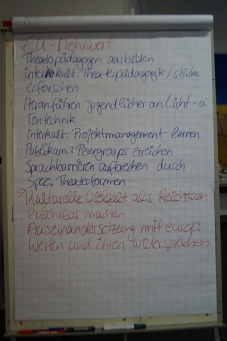 EU-Mehrwert
Theaterpädagogen ausbilden
interkult. Theaterpädagogik / Stücke
erforschen
Heranführen Jugendlicher an Licht- u.
Tontechnik
interkult. Projektmanagement lernen
Publikum: Peergroups erreichen
Sprachbarrieren aufbrechen durch
Spez. Theaterformen
Kulturelle Vielfalt als Reichtum
erfahrbar machen
Auseinandersetzung mit europ.
Werten und ihren Widersprüchen